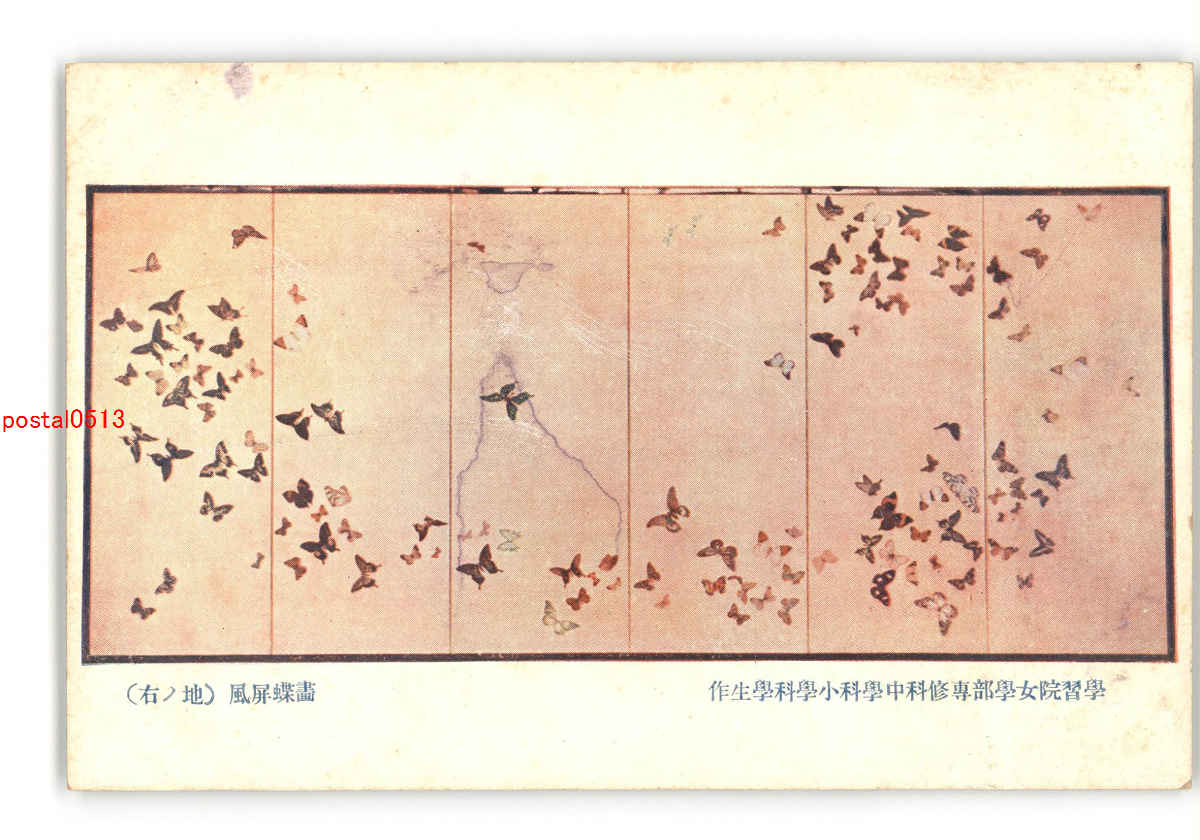 postal0513
學習院女學部專修科中學科小學科學生作
畫蝶屏風(地ノ右)